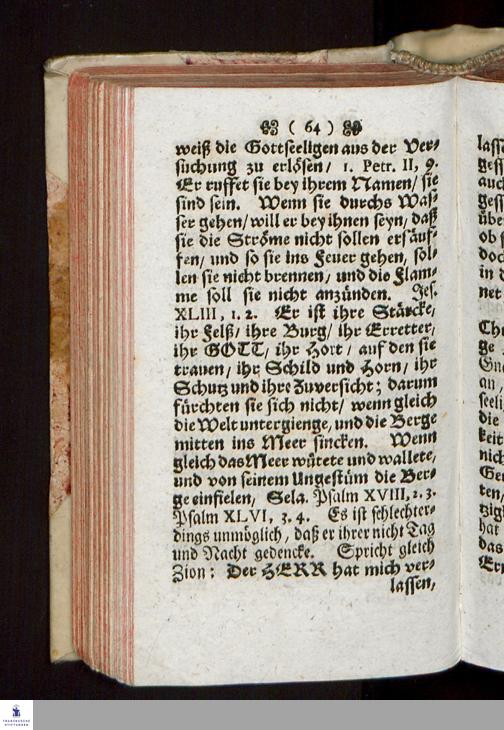 ( 64 )
weiß die Gottseeligen aus der Ver-
suchung zu erlösen/ 1. Petr. II, 9.
Er ruffet sie bey ihrem Namen/ sie
sind sein. Wenn sie durchs Was-
ser gehen/ will er bey ihnen seyn, daß
sie die Ströme nicht sollen ersäuf-
fen, und so sie ins Feuer gehen, sol-
len sie nicht brennen, und die Flam-
me soll sie nicht anzünden. Jes.
XLIII, 1. 2. Er ist ihre Stärcke,
ihr Felß/ ihre Burg/ ihr Erretter,
ihr GOTT, ihr Hort, auf den sie
trauen, ihr Schild und Horn, ihr
Schutz und ihre Zuversicht; darum
fürchten sie sich nicht/ wenn gleich
die Welt untergienge, und die Berge
mitten ins Meer sincken. Wenn
gleich das Meer wütete und wallete,
und von seinem Ungestüm die Ber-
ge einfielen, Sela. Psalm XVIII, 2. 3.
Psalm XLVI, 3. 4. Es ist schlechter-
dings unmöglich, daß er ihrer nicht Tag
und Nacht gedencke. Spricht gleich
Zion: Der HERR hat mich ver-
lassen,